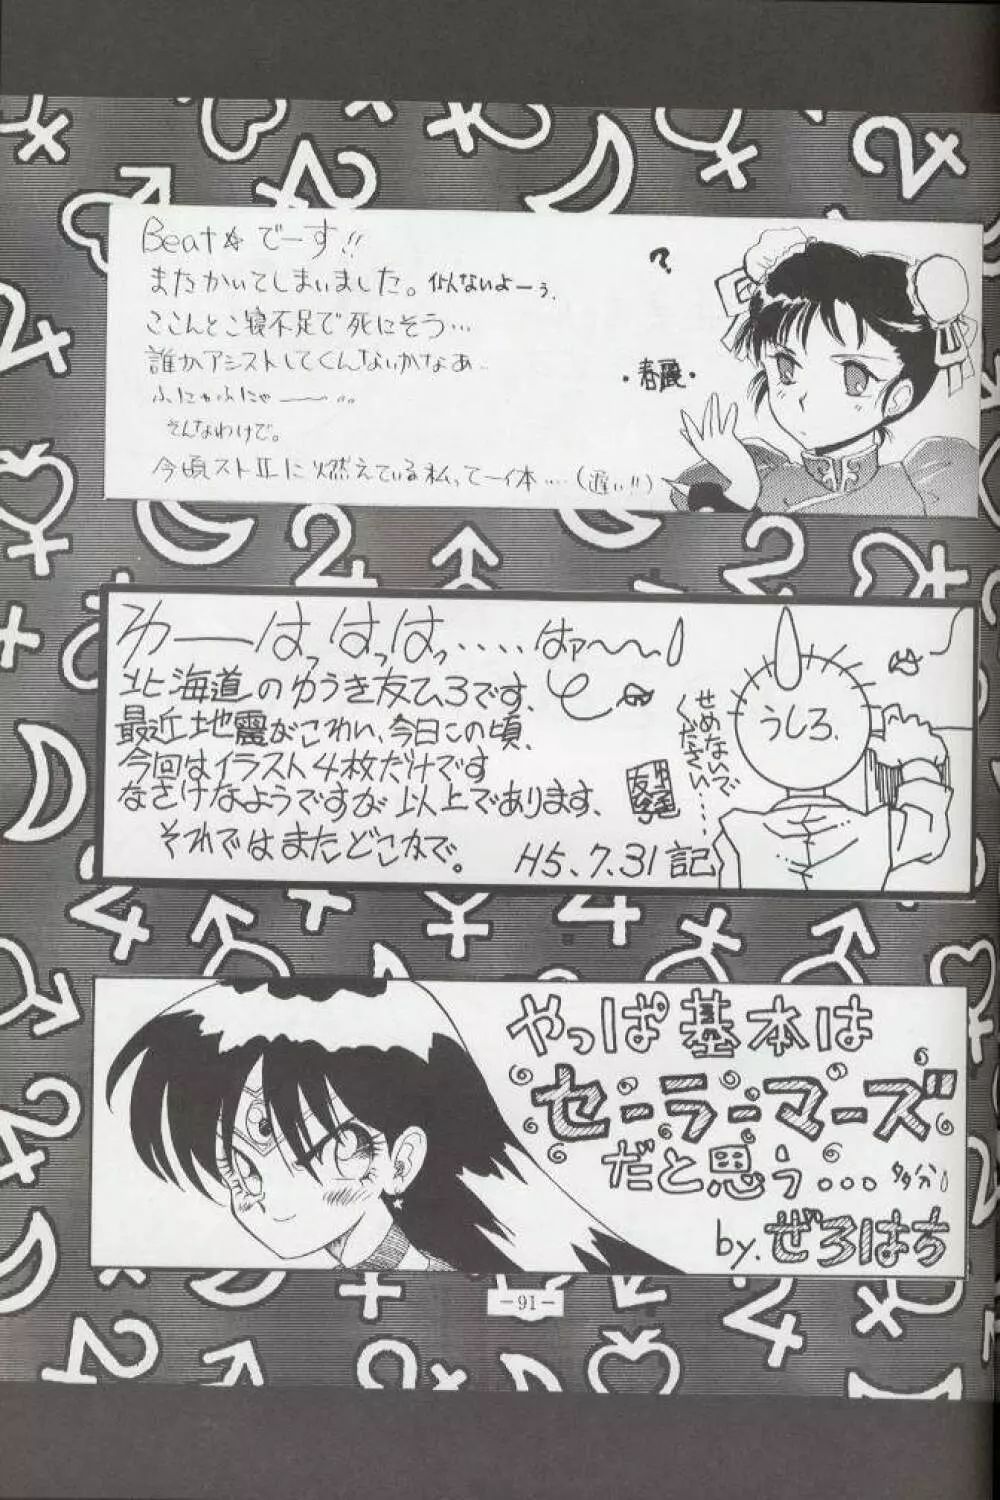 Beat☆でーす!!
またかいてしまいました。似んないよーぅ.
ここんとこ寝不足で死にそう…
誰かアシストしてくんないかなぁ..
ふにゃふにゃー
そんなわけで。
今頃ストⅡに燃えている私って一体…(遅い!!)
?
・春麗・
わーはっはっはっ....はァ〜〜
北海道のゆうき友ひろです、
最近地震がこわい、今日この頃、
今回はイラスト4枚だけです
なさけなようですが以上であります、
それではまたどこかで。
H5.7.31記
せめないで
ください…
うしろ.
やっぱ基本は
セーラーマーズ
だと思う...多分
by.ぜろはち
-91-